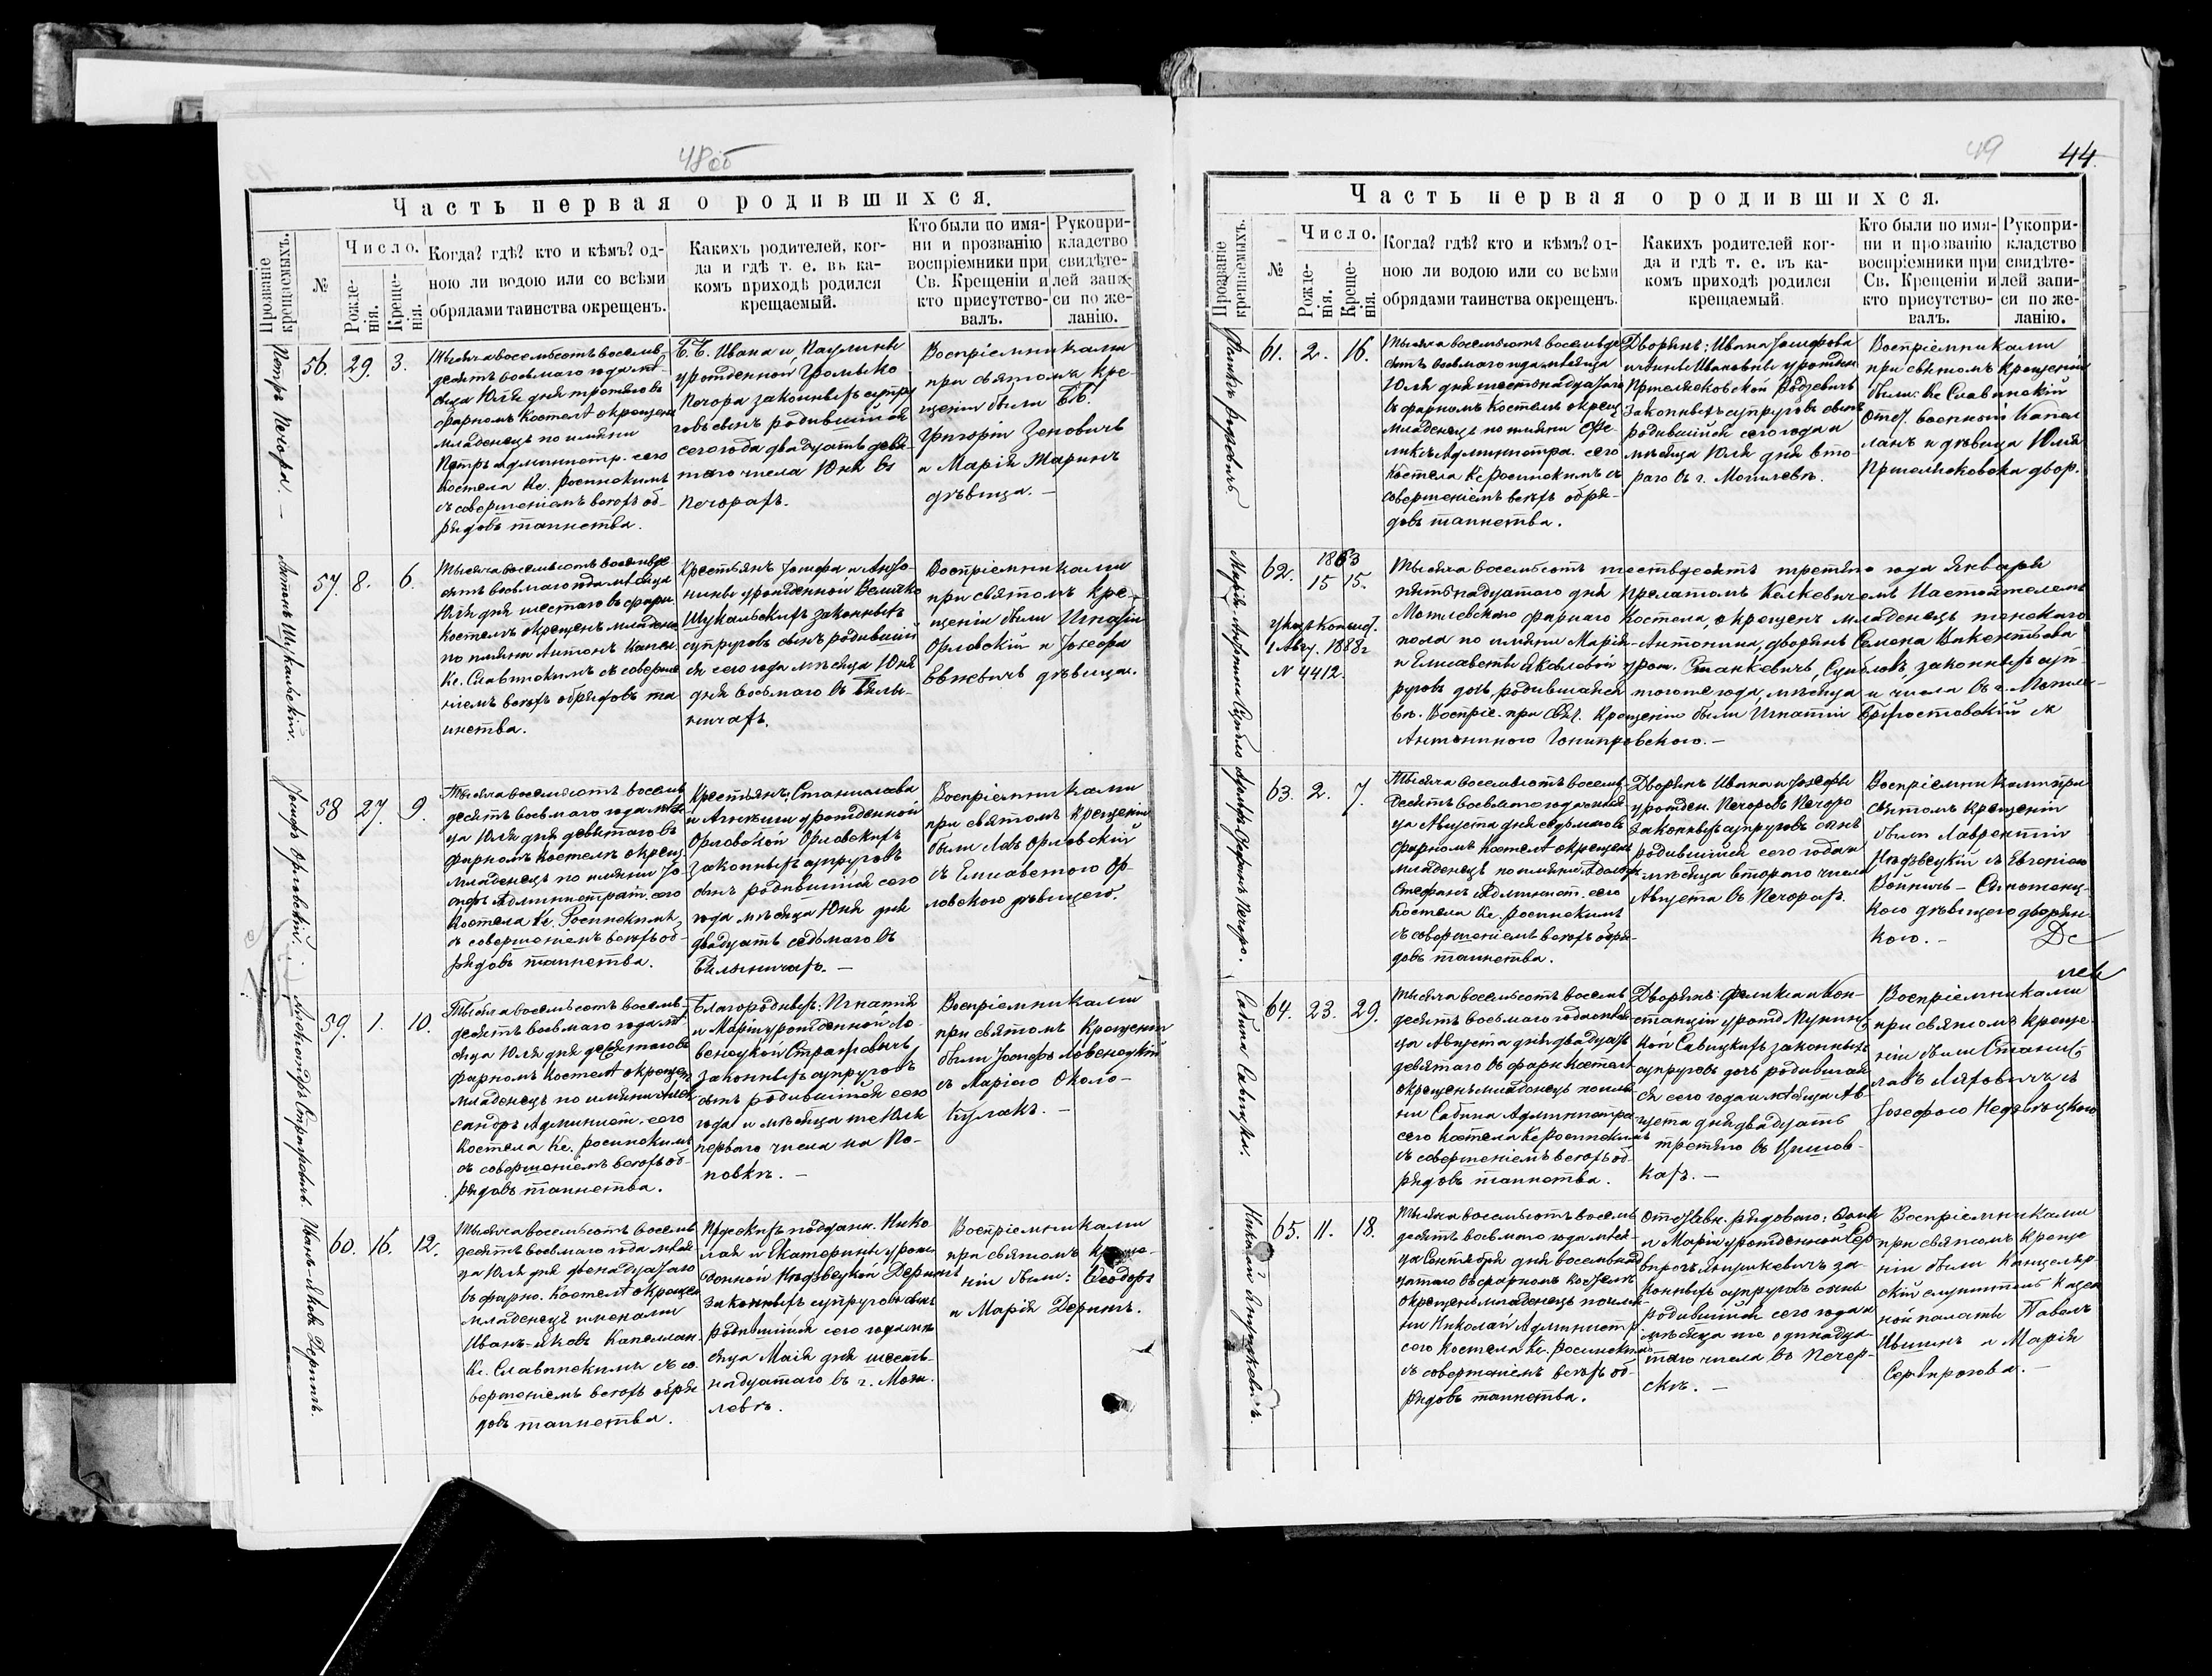 48об
Часть первая о родившихся.
Прозваніе крещаемыхъ.
№
Число.
Рожде-
нія.
Креще-
нія.
Когда? гдѣ? кто и кѣмъ? од-
ною ли водою или со всѣми
обрядами таинства окрещенъ.
Какихъ родителей, ког-
да и гдѣ т. е. въ ка-
комъ приходѣ родился
крещаемый.
Кто были по имя-
ни и прозванію
воспріемники при
Св. Крещеніи и
кто присутство-
валъ.
Рукопри-
кладство
свидѣте-
лей запи-
си по же-
ланію.
Петръ Печора.
56. 29. 3.
Тысяча восемьсотъ восемь
десятъ восьмаго года мѣ-
сяца Юля дня третяго въ
фарномъ Костелѣ окрещенъ
младенецъ по имяни
Петръ Администр. сего
Костела Кс. Росинскимъ
съ совершеніемъ всехъ об-
рядовъ таинства.
Б.Б. Ивана и Паулины
урожденной Громыко
Печора законныхъ супру
говъ сынъ родившійся
сего года двадцать девя
таго числа Юня въ
Печорахъ.
Воспріемниками
при святомъ Кре-
щеніи были ББ.
Григорій Зеновичъ
и Марія Жаринъ
дѣвица.
Антонъ Шукальскій.
57. 8. 6.
Тысяча восемьсотъ восемьде
сятъ восьмаго года мѣсяца
Юля дня шестаго въ фарн.
Костелѣ окрещенъ младене.
по имяни Антонъ Капел.
Кс. Славинскимъ съ соверше
ніемъ всехъ обрядовъ та
инства.
Крестьянъ Іосифа и Анто-
нины урожденной Величко
Шукальскихъ законныхъ
супруговъ сынъ родивший
ся сего года мѣсяца Юня
дня восьмаго въ Белы-
ничахъ.
Воспріемниками
при святомъ Кре-
щеніи были Игнатій
Орловскій и Іозефа
дѣвица.
Іосифъ Орловскій.
58 27. 9.
Тысяча восемьсотъ восемь
десятъ восьмаго года мѣся
ца Юля дня девятаго въ
фарномъ Костелѣ окрещ.
младенецъ по имяни Іо-
сифъ Администрат. сего
Костела Кс. Росинскимъ
съ совершеніемъ всехъ об-
рядовъ таинства.
Крестьянъ: Станислава
и урожденной
Орловской Орловскихъ
законныхъ супруговъ
сынъ родившійся сего
года мѣсяца Юня дня
двадцать седьмаго въ
Белыничахъ.
Воспріемниками
при святомъ Крещеніи
были Левъ Орловскій
съ Елисаветою Ор-
ловскою дѣвицею.
Александръ Страховичъ.
59. 1. 10.
Тысяча восемьсотъ восемь-
десятъ восьмаго года мѣ-
сяца Юля дня десятаго въ
фарномъ Костелѣ окрещен
младенецъ по имяни Алек
сандръ Админист. сего
Костела Кс. Росинскимъ
съ совершеніемъ всехъ об-
рядовъ таинства.
Благородныхъ: Игнатія
и Маріи урожденной Ло-
венецкой Страховичъ
законныхъ супруговъ
сынъ родившійся сего
года и мѣсяца же Юля
перваго числа на По-
повкѣ.
Воспріемниками
при святомъ Крещеніи
были Іосифъ Ловенецкій
съ Маріею Около-
Кулакъ.
Иванъ-Яковъ Дерингъ.
60. 16. 12.
Тысяча восемьсотъ восемь
десятъ восьмаго года мѣся
ца Юля дня двенадцатаго
въ фарно. Костелѣ окрещен
младенецъ именами
Иванъ-Яковъ Капеллан.
Кс. Славинскимъ съ со
вершеніемъ всехъ обря
довъ таинства.
Прускихъ поддан. Нико
лая и Екатерины урож
денной Недзвецкой Дерингъ
законныхъ супруговъ сынъ
родившійся сего года мѣ
сяца Маія дня шест-
надцатаго въ г. Моги.
левѣ.
Воспріемниками
при святомъ Креще-
ніи были: Ѳеодоръ
и Марія Дерингъ.
49 44
Часть первая о родившихся.
Прозваніе крещаемыхъ.
№
Число.
Рожде-
нія.
Креще-
нія.
Когда? гдѣ? кто и кѣмъ? од-
ною ли водою или со всѣми
обрядами таинства окрещенъ.
Какихъ родителей ког-
да и гдѣ т. е. въ ка-
комъ приходѣ родился
крещаемый.
Кто были по имя-
ни и прозванію
воспріемники при
Св. Крещеніи и
кто присутство-
валъ.
Рукопри-
кладство
свидѣте-
лей запи-
си по же-
ланію.
61. 2. 16.
Тысяча восемьсотъ восемьде
сятъ восьмаго года мѣсяца
Юля дня шестьнадцатаго
въ фарномъ Костелѣ окрещ
младенецъ по имяни Фе-
ликсъ Администра. сего
Костела Кс Росинскимъ съ
совершеніемъ всехъ обря-
довъ таинства.
Дворянъ: Ивана Іосифова
Ивановны урожден
законныхъ супруговъ сынъ
родившійся сего года и
мѣсяца Юля дня вто-
раго въ г. Могилевѣ.
Воспріемниками
при святомъ Крещеніи
были: Кс Славинскій
Отст. военный Капел
ланъ и дѣвица Юлія
двор.
62. 1863
15 15.
Указъ Консист.
1 Авгу. 1888г
N 4412.
Тысяча восемьсотъ шестьдесятъ третяго года Января
пятьнадцатаго дня Прелатомъ Келкевичемъ Настоятелемъ
Могилевскаго фарнаго Костела окрещенъ младенецъ женскаго
пола по имяни Марія-Антонина, дворянъ Семена Викентьева
и Елисаветы Яковлевой урож. Станкевичъ, законныхъ суп
руговъ дочь, родившаяся тогоже года, мѣсяца и числа въ г. Могиле-
вѣ. Воспріе. при Свят. Крещеніи были Игнатій и
Антониною
63. 2. 7.
Тысяча восемьсотъ восемь
десятъ восьмаго года мѣся
ца Августа дня седьмаго въ
фарномъ Костелѣ окрещенъ
младенецъ по имяни Адольфъ
Стефанъ Админист. сего
Костела Кс. Росинскимъ
съ совершеніемъ всехъ обря-
довъ таинства.
Дворянъ Ивана и Іозефы
урожден. Печоровъ Печоро
законныхъ супруговъ сынъ
родившійся сего года и
мѣсяца втораго числа
Августа въ Печорахъ.
Воспріемниками при
святомъ Крещеніи
были Лаврентій
Недзвецкій съ Евгеніею
Войничъ-Сяноженц-
кою дѣвицею дворян
кою.
Сабина Савицкая.
64. 23. 29.
Тысяча восемьсотъ восемь
десятъ восьмаго года мѣся
ца Августа дня двадцать
девятаго въ фарн Костелѣ
окрещенъ младенецъ по имя
ни Сабина Администра
сего Костела Кс Росинскимъ
съ совершеніемъ всехъ об-
рядовъ таинства.
Дворянъ: Феликса и Кон-
станціи урожд
Савицкихъ законныхъ
супруговъ дочь родившая
ся сего года и мѣсяца Ав-
густа дня двадцать
третяго въ
кахъ.
Воспріемниками
при святомъ Креще-
ніи были Станис-
лавъ Ляховичъ съ
Іозефою Недзвецкою
65. 11. 18.
Тысяча восемьсотъ восемь
десятъ восьмаго года мѣся
ца Сентября дня восемнад
цатаго въ фарномъ Костелѣ
окрещенъ младенецъ по имя
ни Николай Админист.
сего Костела Кс. Росинскимъ
съ совершеніемъ всехъ об-
рядовъ таинства.
Отставн. рядового:
и Маріи урожденной
за-
конныхъ супруговъ сынъ
родившійся сего года и
мѣсяца же одинадца-
таго числа въ Печер-
скѣ.
Воспріемниками
при святомъ Креще
ніи были Канцеляр
скій служитель Казен
ной палаты Павелъ
Ившинъ и Марія